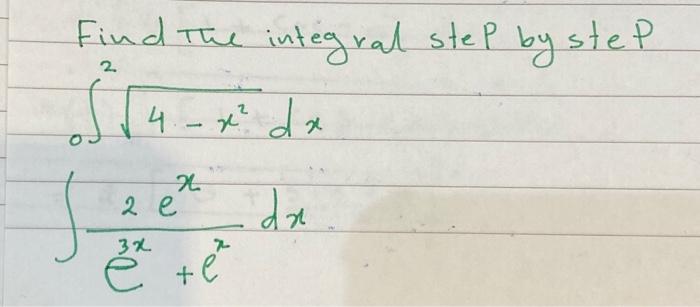 Find The integral step by step
∫₀² √(4 - x²) dx
∫ 2eˣ / (e³ˣ + eˣ) dx